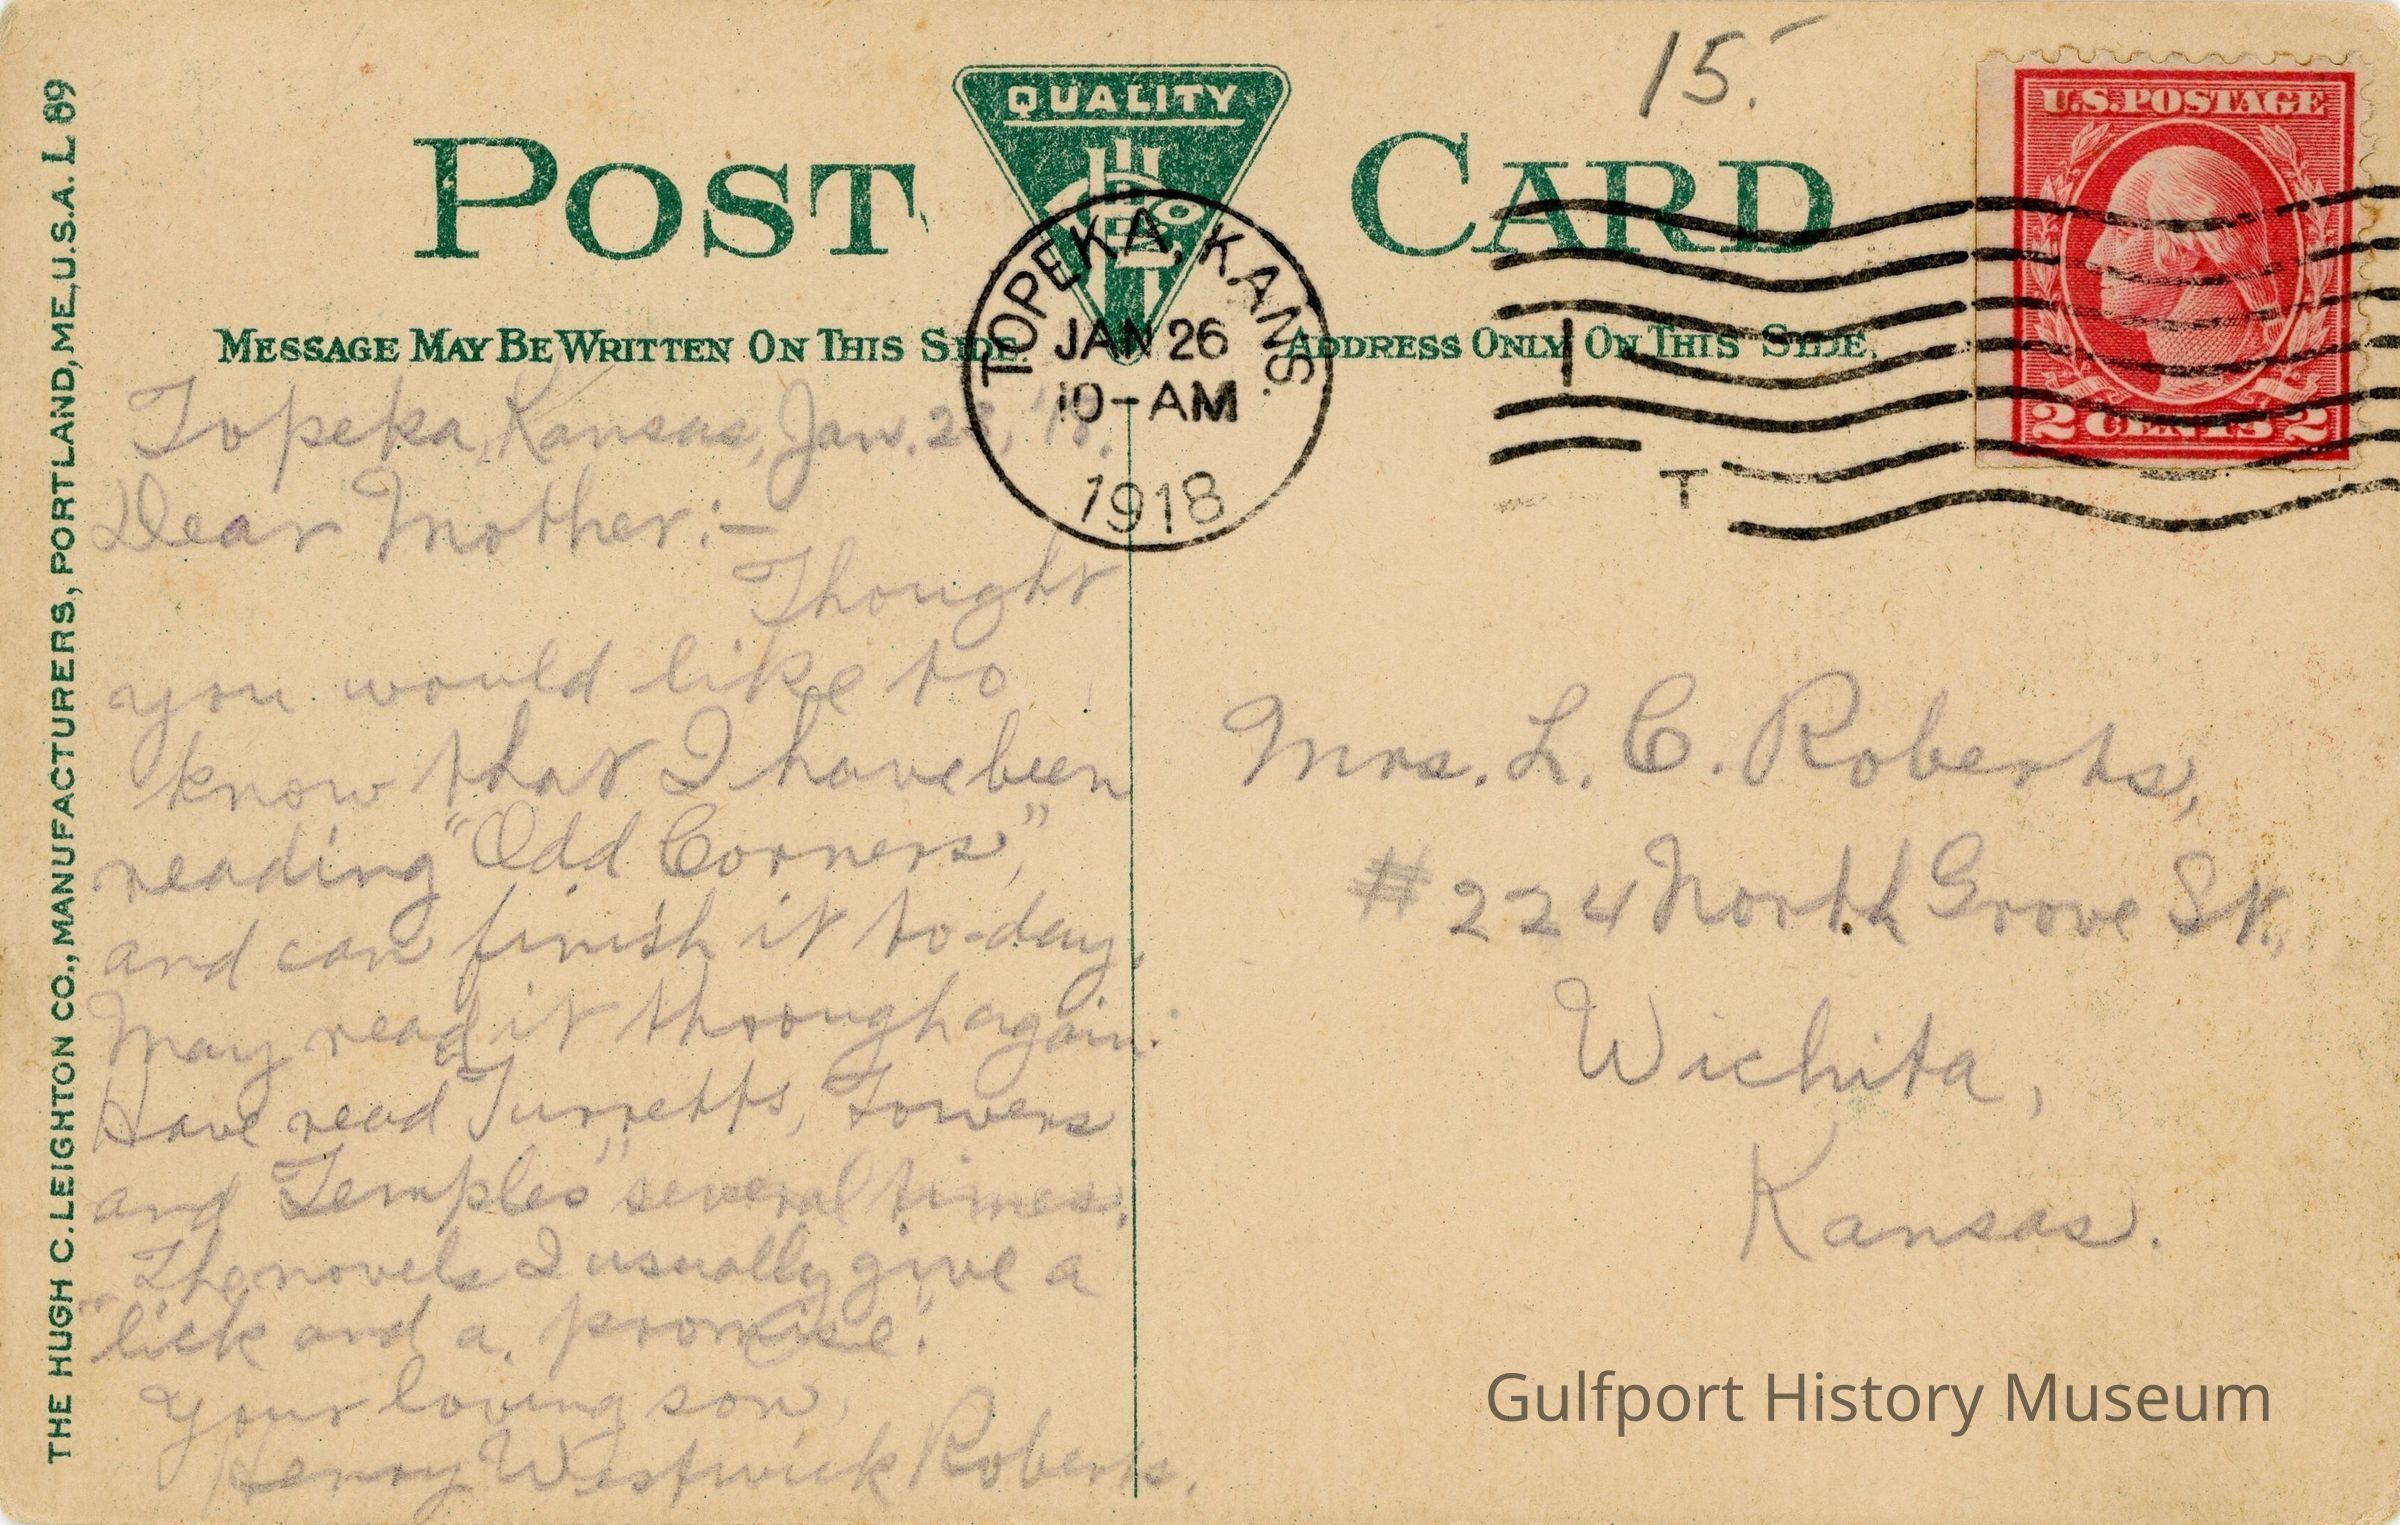 15.-
QUALITY
POST CARD
U.S. POSTAGE
2 CENTS 2
TOPEKA, KANS.
JAN 26
10-AM
1918
MESSAGE MAY BE WRITTEN ON THIS SIDE.
ADDRESS ONLY ON THIS SIDE.
THE HUGH C. LEIGHTON CO., MANUFACTURERS, PORTLAND, ME., U.S.A. L 89
Topeka, Kansas, Jan. '18.
Dear Mother:-
Thought
you would like to
know that I have been
reading "Odd Corners,"
and can finish it to-day.
May read it throough again.
Have read Turretts, Towers
and Temples" several times.
The novels I usually give a
"lick and a promise."
Your loving son,
Henry Westwick Roberts.
Mrs. L. C. Roberts,
#224 North Grove St.,
Wichita,
Kansas.
Gulfport History Museum